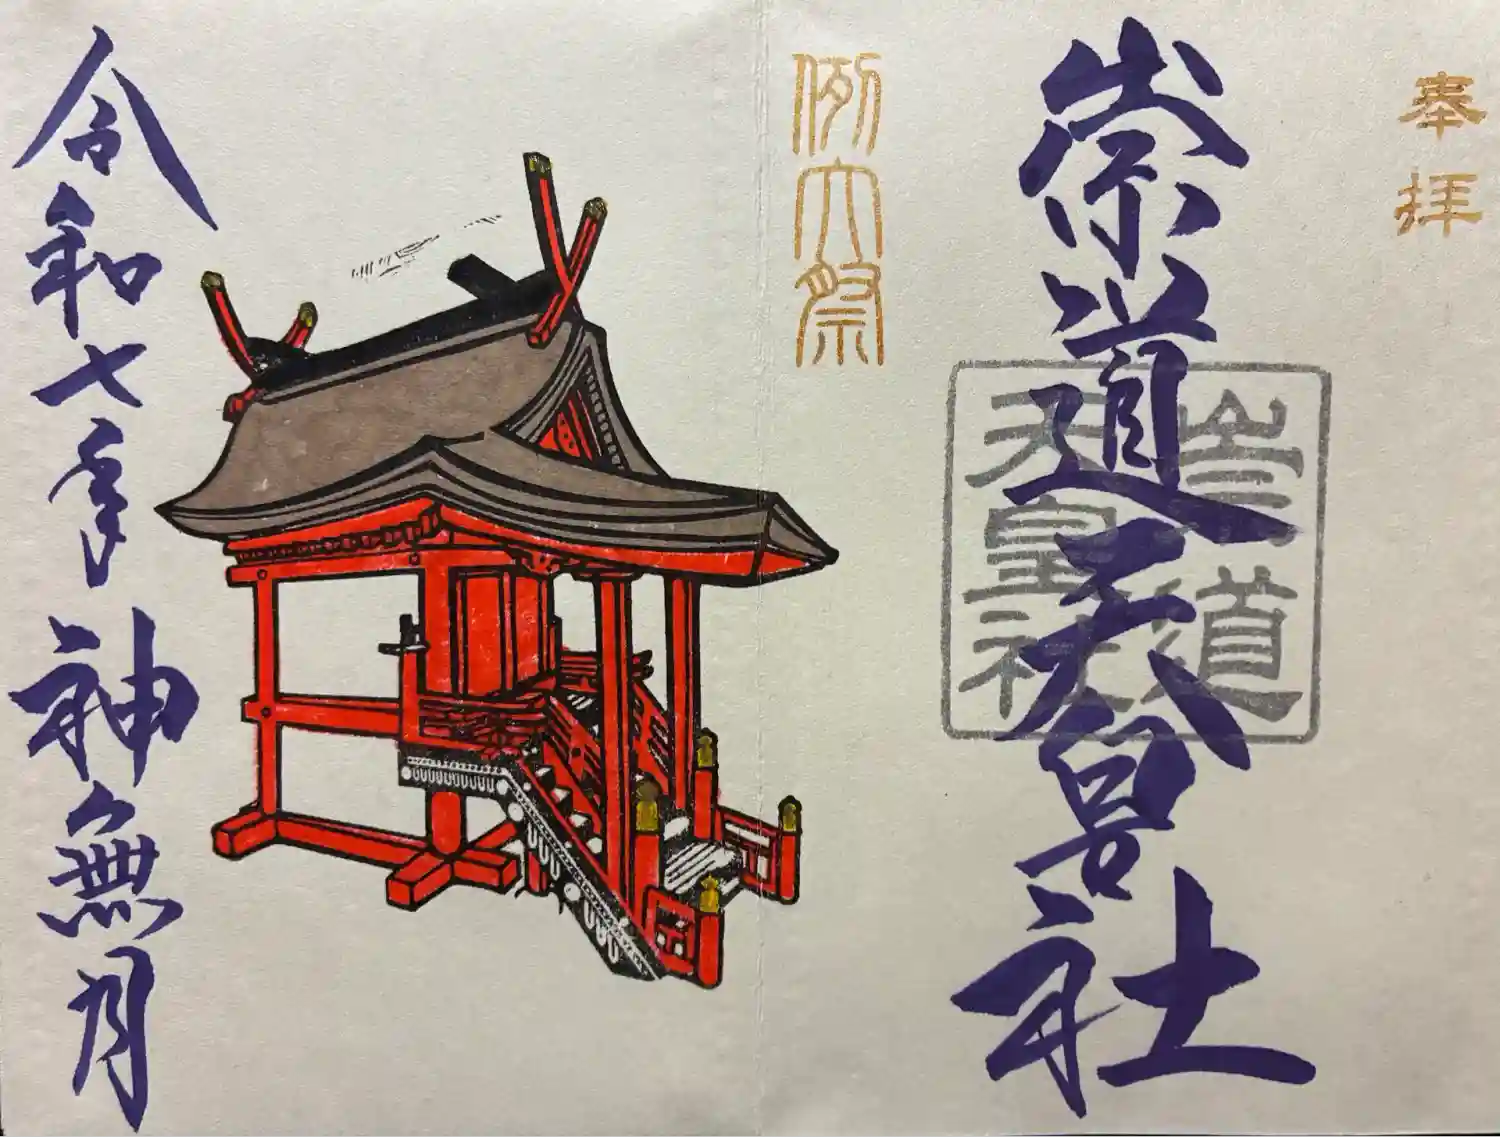 奉拝
崇道天皇社
崇道天皇社
例大祭
令和七年 神無月